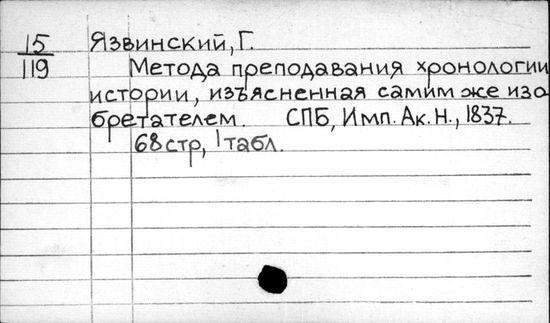 15 Язвинский, Г.
119 Метода преподавания хронологии
истории, изъясненная самим же изо
бретателем. СПБ, Имп. Ак. Н., 1837.
68 стр, 1 табл.